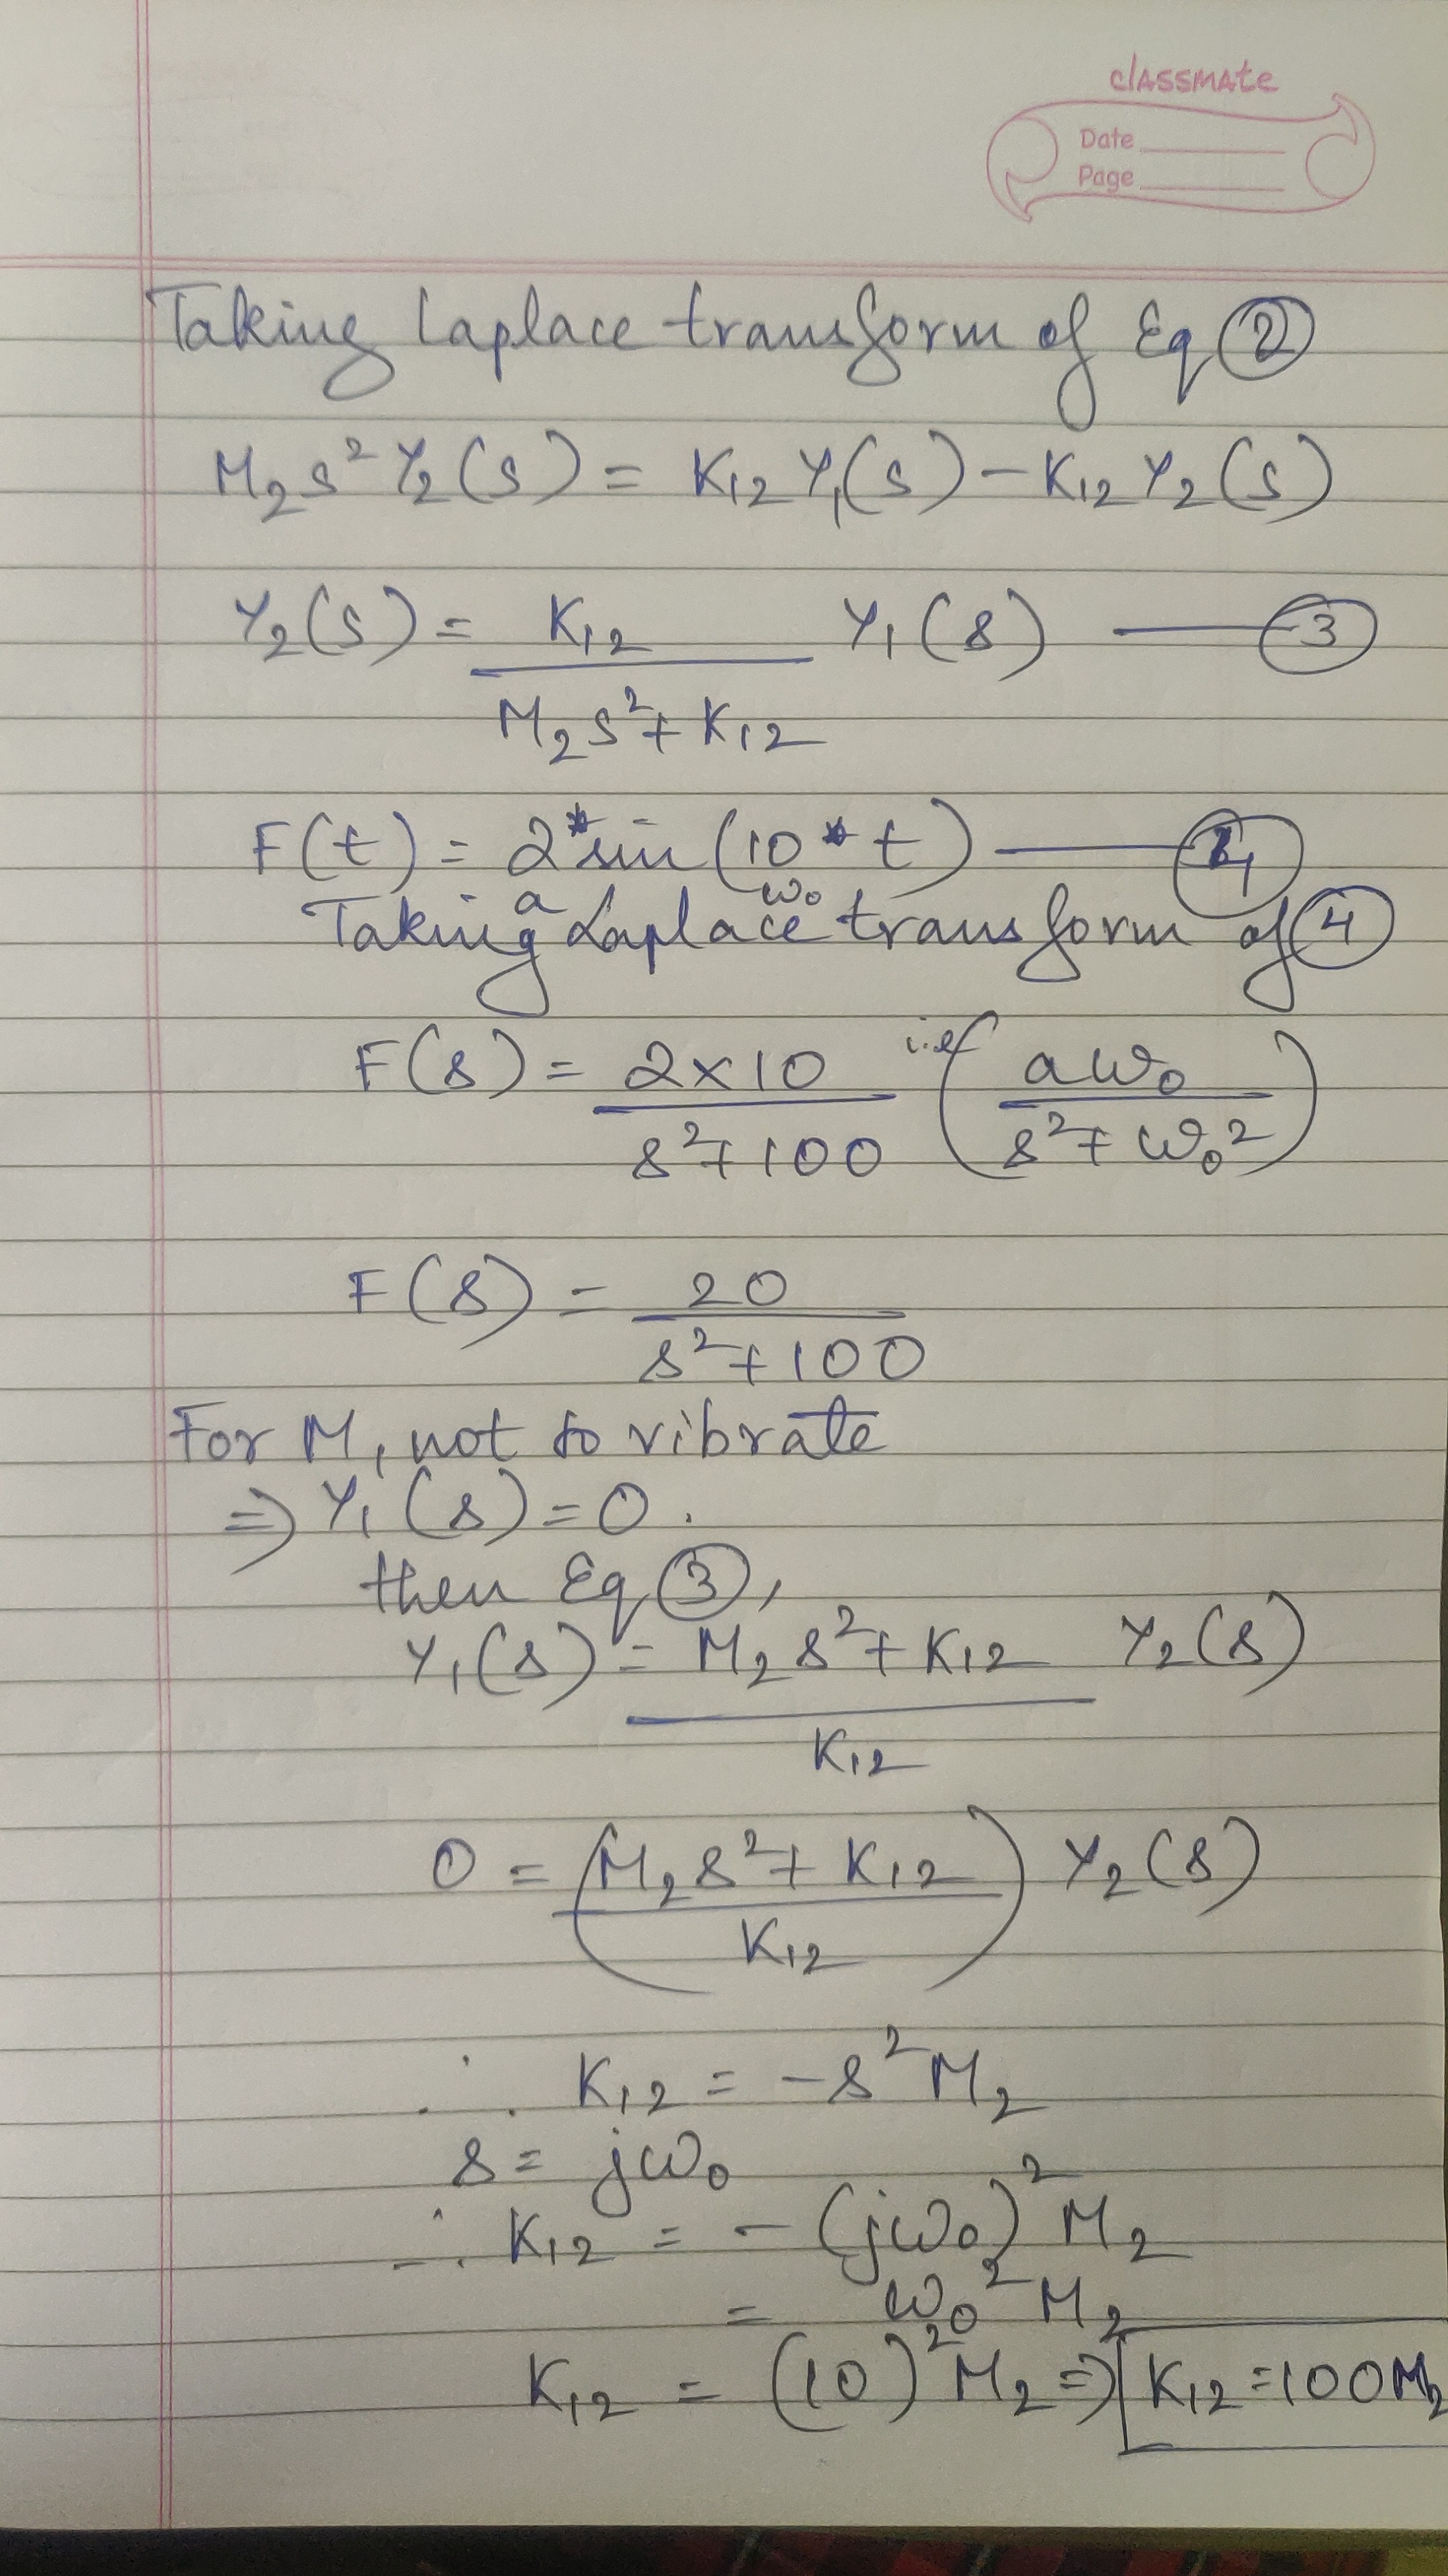 classmate
Date
Page
Taking Laplace transform of Eq ②
M₂s²Y₂(s) = K₁₂Y₁(s) - K₁₂Y₂(s)
Y₂(s) = K₁₂ Y₁(s) — ③
M₂s² + K₁₂
F(t) = 2*sin(10*t) — ④
a ω₀
Taking Laplace transform of ④
F(s) = 2×10 i.e. (aω₀
s²+100 s²+ω₀²)
F(s) = 20
s²+100
For M₁ not to vibrate
⇒ Y₁(s) = 0.
then Eq ③,
Y₁(s) = M₂s² + K₁₂ Y₂(s)
K₁₂
0 = (M₂s² + K₁₂) Y₂(s)
K₁₂
∴ K₁₂ = -s²M₂
s = jω₀
∴ K₁₂ = -(jω₀)²M₂
= ω₀²M₂
K₁₂ = (10)²M₂ ⇒ K₁₂ = 100M₂